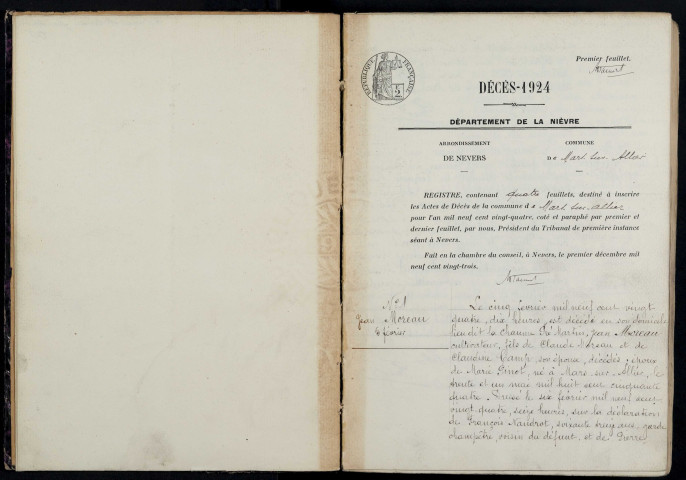 Premier feuillet.
RÉPUBLIQUE FRANÇAISE
DÉCÈS-1924
DÉPARTEMENT DE LA NIÈVRE
ARRONDISSEMENT
DE NEVERS
COMMUNE
DE Mars-sur-Allier
REGISTRE, contenant quatre feuillets, destiné à inscrire
les Actes de Décès de la commune de Mars-sur-Allier
pour l'an mil neuf cent vingt-quatre, coté et paraphé par premier et
dernier feuillet, par nous, Président du Tribunal de première instance
séant à Nevers.
Fait en la chambre du conseil, à Nevers, le premier décembre mil
neuf cent vingt-trois.
N° 1
Jean Moreau
février
Le cinq février mil neuf cent vingt
quatre, dix heures, est décédé en son domicile
lieu dit la Martin, Jean Moreau
cultivateur, fils de Claude Moreau et de
Claudine son épouse, décédés; époux
de Marie né à Mars-sur-Allier, le
trente et un mai mil huit cent cinquante
quatre. Dressé le six février mil neuf cent
vingt quatre, seize heures, sur la déclaration
de François soixante ans, garde
champêtre, voisin du défunt, et de Pierre